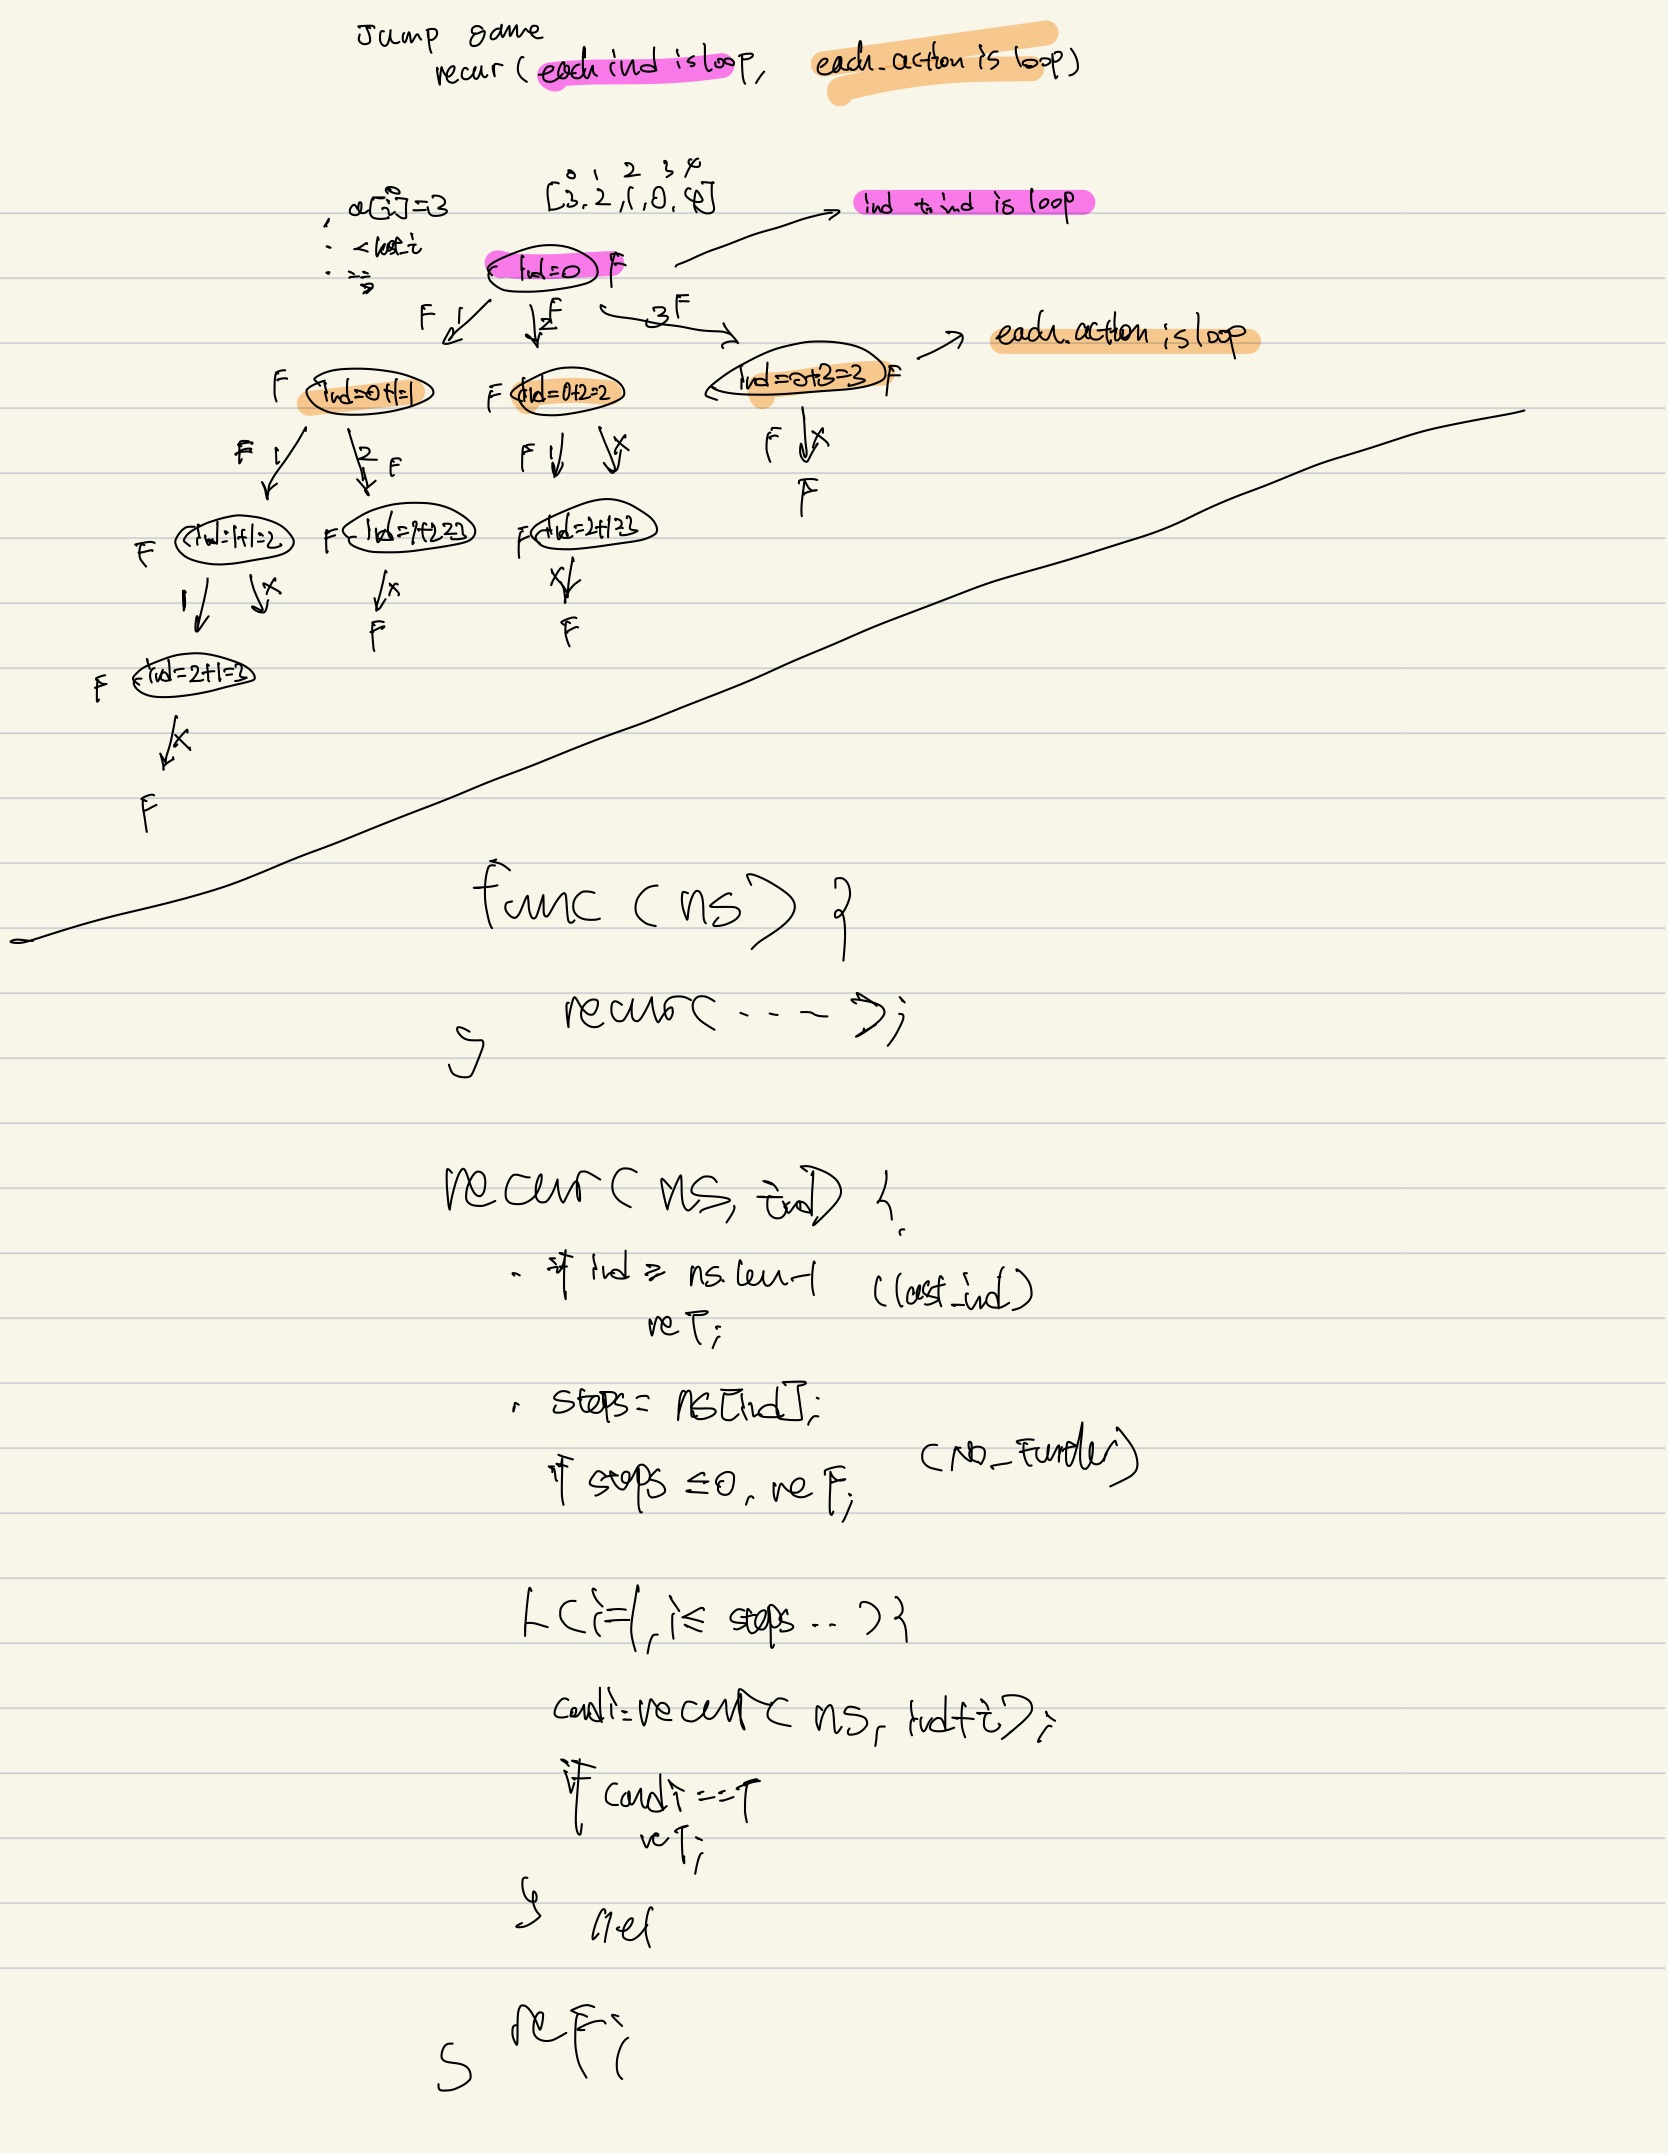 Jump game
recur ( each ind is loop, each_action is loop)
0 1 2 3 4
a[i]=3 [3, 2, 1, 0, 4] ind to ind is loop
0
. < last_i
. ==
ind=0 F
F 1 2 F 3 F each_action is loop
F ind=0+1=1 F ind=0+2=2 ind=0+3=3 F
F 1 2 F F 1 x F x
F
F ind=1+1=2 F ind=1+2=3 F ind=2+1=3
1 x x x
F F
F ind=2+1=3
x
F
func (ns) {
recur( - - - - );
}
recur( ns, ind) {
. if ind ≥ ns.len-1 (last_ind)
re T;
. steps= ns[ind];
if steps ≤0, re F; (No_Further)
L(i=1, i≤ steps .. ){
condi=recur( ns, ind+i);
if condi==T
re T;
}
re F;
}